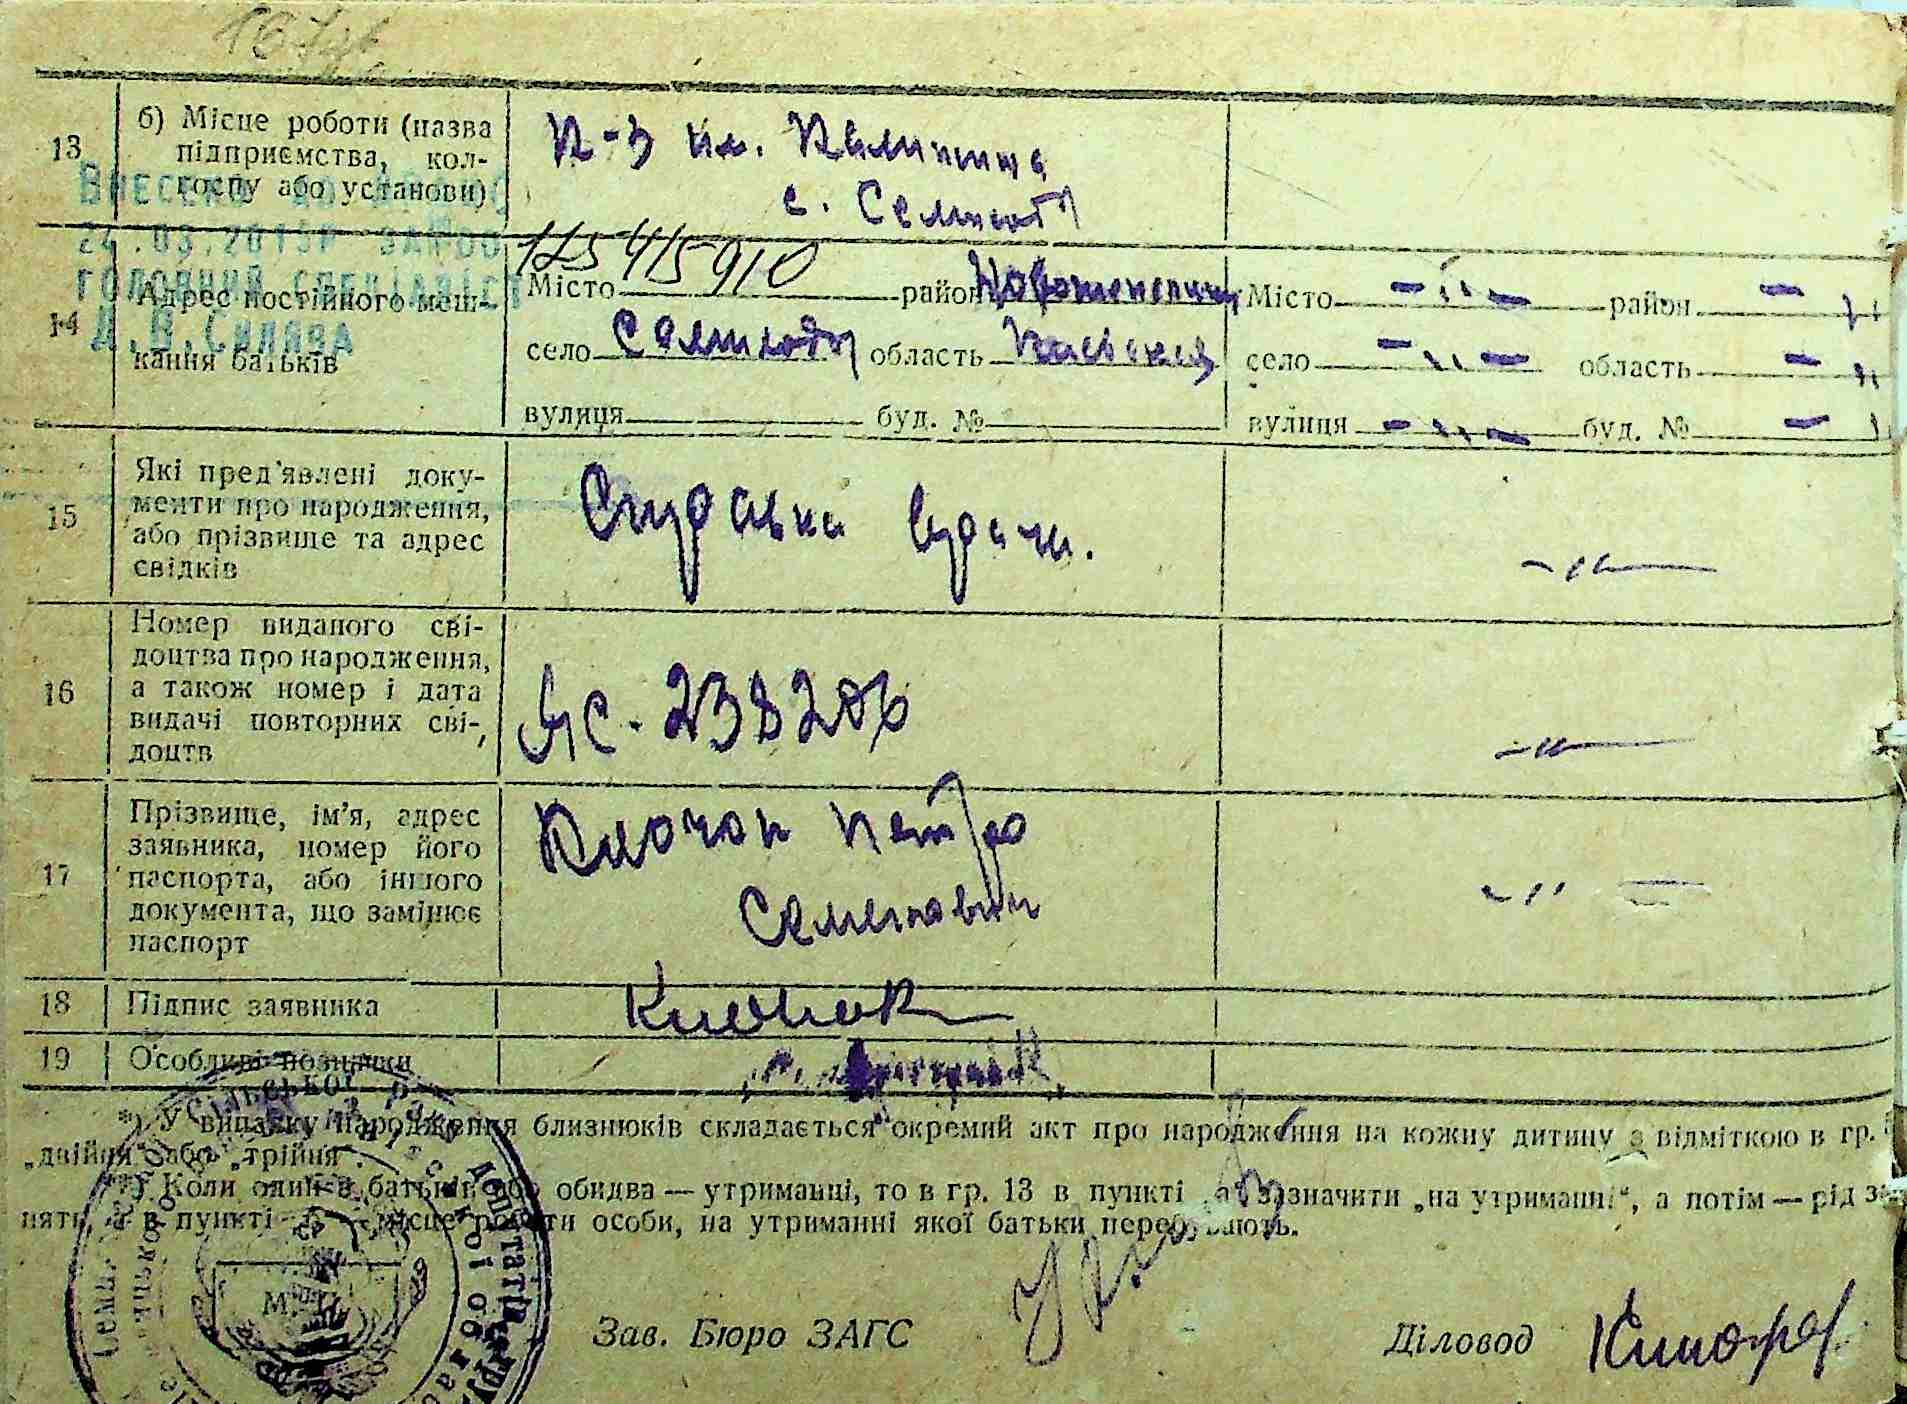 13
б) Місце роботи (назва
підприємства, кол-
госпу або установи)
к-з им. Калинина
с. Семиходи
24.03.2015р
ГОЛОВНИЙ СПЕЦІАЛІСТ
14
Адрес постійного меш-
кання батьків
125415910
Місто район
село Семиходи область Киевская
вулиця буд. №
Місто – „ – район – „
село – „ – область – „
вулиця – „ – буд. № – „
15
Які пред'явлені доку-
менти про народження,
або прізвище та адрес
свідків
–„–
16
Номер виданого сві-
доцтва про народження,
а також номер і дата
видачі повторних сві-
доцтв
ЯС-238206
–„–
17
Прізвище, ім'я, адрес
заявника, номер його
паспорта, або іншого
документа, що замінює
паспорт
Клочок Петро
Семенович
–„–
18
Підпис заявника
Клочок
19
Особливі позначки
*) У випадку народження близнюків складається окремий акт про народження на кожну дитину з відміткою в гр.
„двійня“ або „трійня“.
**) Коли один з батьків або обидва — утриманці, то в гр. 13 в пункті „а“ зазначити „на утриманні“, а потім — рід за-
няти, а в пункті місце роботи особи, на утриманні якої батьки перебувають.
М. П.
Зав. Бюро ЗАГС
Діловод